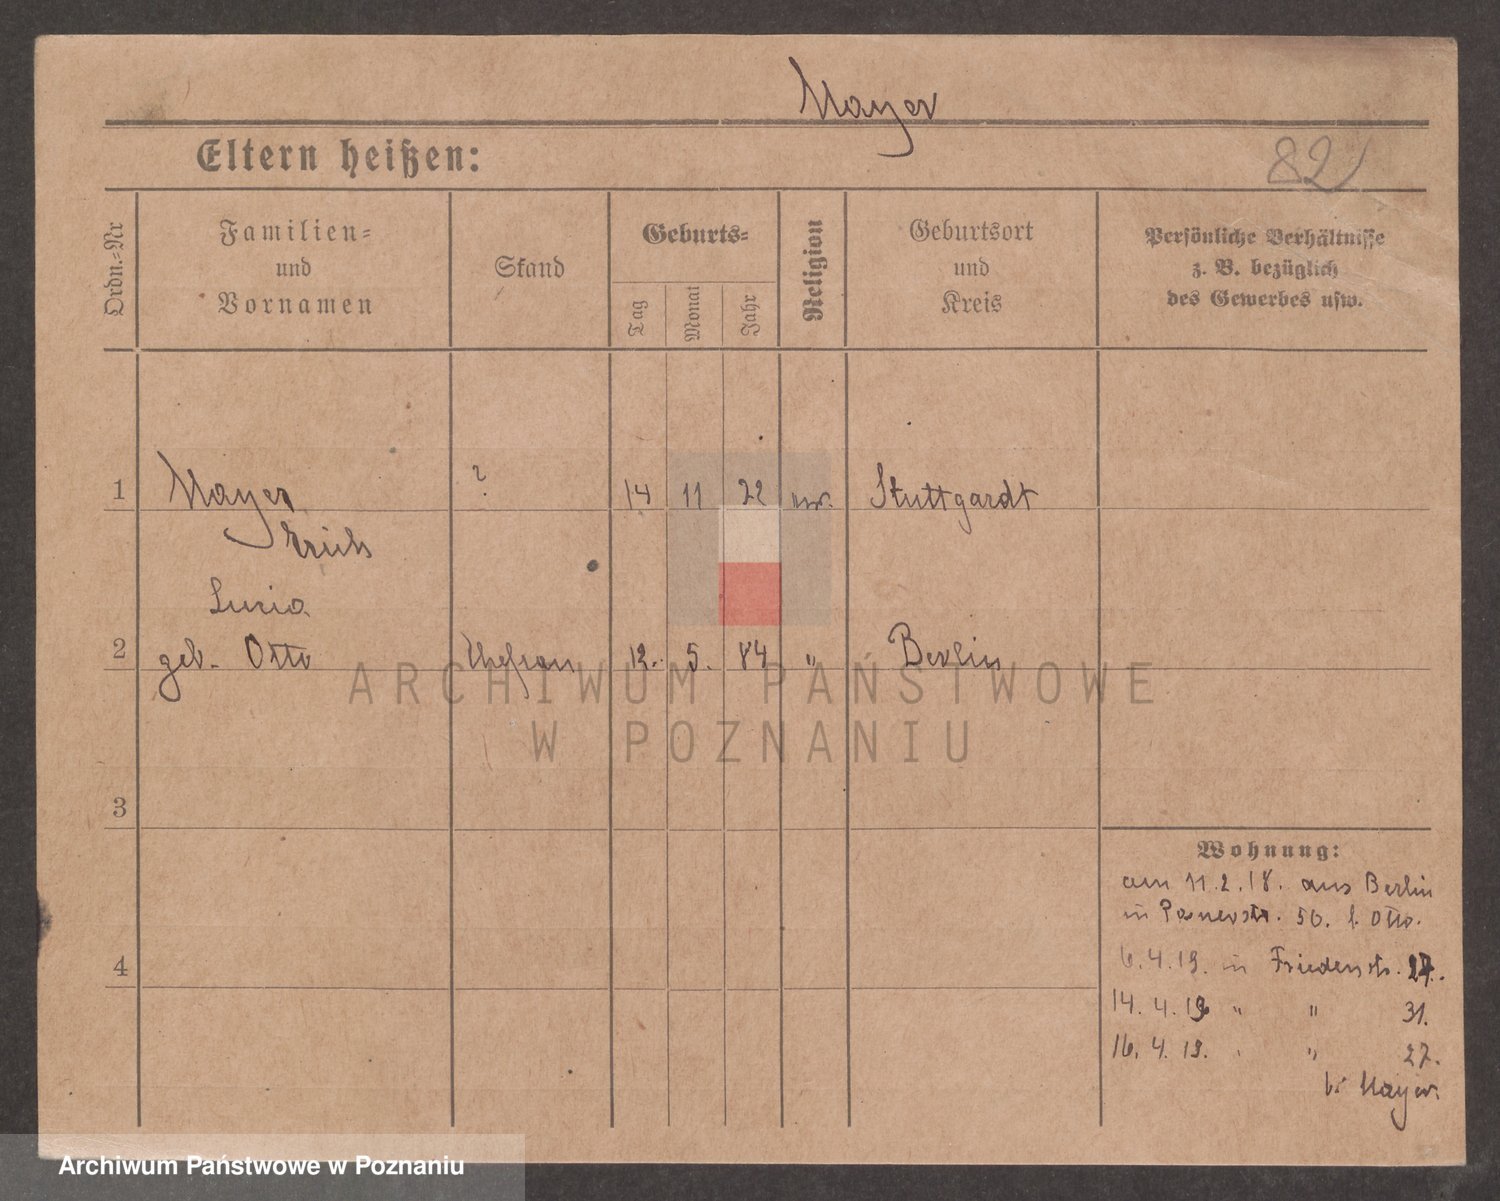 Mayer
Eltern heißen:
82
Ordn.-Nr
Familien-
und
Vornamen
Stand
Geburts-
Tag
Monat
Jahr
Religion
Geburtsort
und
Kreis
Persönliche Verhältnisse
z. B. bezüglich
des Gewerbes usw.
1 Mayer ? 14 11 Stuttgardt
Erich
Lucia
2 geb. Otto Ehefrau 12. 5. 84 " Berlin
3
4
Wohnung:
am 11.2.18. aus Berlin
in Posenerstr. 56. b. Otto.
6.4.19. in Friedenstr. 27.
14.4.19 " " 31.
16.4.19. " " 27.
bei Mayer.
ARCHIWUM PAŃSTWOWE
W POZNANIU
Archiwum Państwowe w Poznaniu